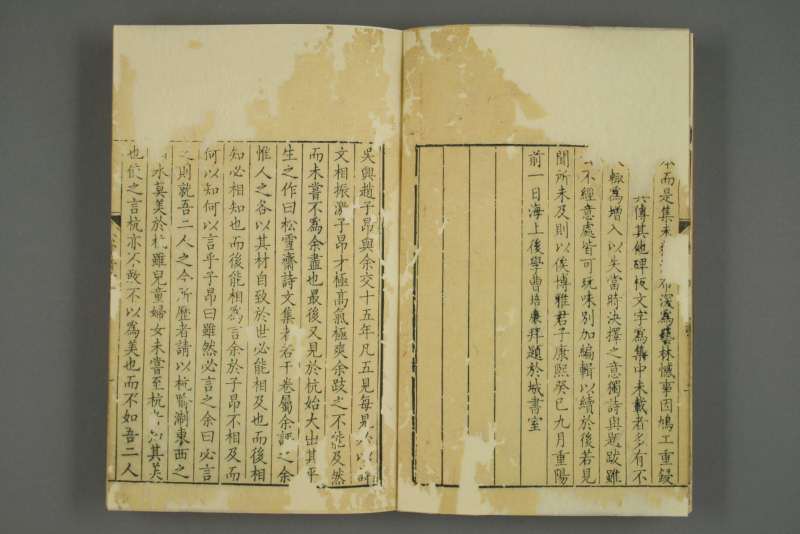 本而是集未 布深爲藝林憾事因鳩工重鋟
六傳其他碑板文字爲集中未載者多有不
輙爲增入以失當時決擇之意獨詩與題跋雖
不經意處皆可玩味别加編輯以續於後若見
聞所未及則以俟博雅君子康熙癸巳九月重陽
前一日海上後學曹培廉拜題於城書室
吳興趙子昂與余交十五年凡五見每見必以詩
文相振激子昂才極高氣極爽余跂之不能及然
而未嘗不爲余盡也最後又見於杭始大出其平
生之作曰松雪齋詩文集者若干卷屬余評之余
惟人之各以其材自致於世必能相及也而後相
知必相知也而後能相爲言余於子昂不相及而
何以知何以言乎子昂曰雖然必言之余曰必言
之則就吾二人之今所歷者請以杭喻浙東西之
水莫美於杭雖兒童婦女未嘗至杭 其美
也使之言杭亦不敢不以爲美也而不如吾二人